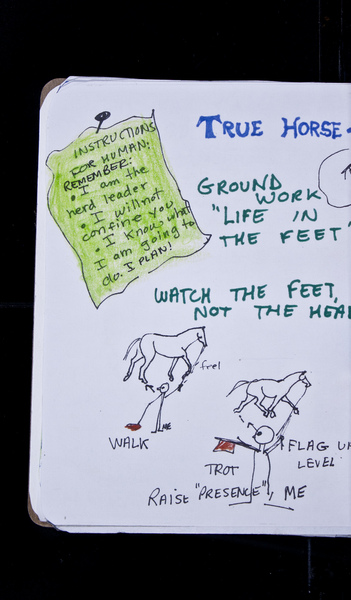 INSTRUCTIONS
FOR HUMAN:
REMEMBER:
• I am the
herd leader
• I will not
confine you
• I know what
I am going to
do. I PLAN!
TRUE HORSE
GROUND
WORK
"LIFE IN
THE FEET"
WATCH THE FEET,
NOT THE HEA
feel
ME
WALK
FLAG UP
LEVEL
TROT
RAISE "PRESENCE", ME